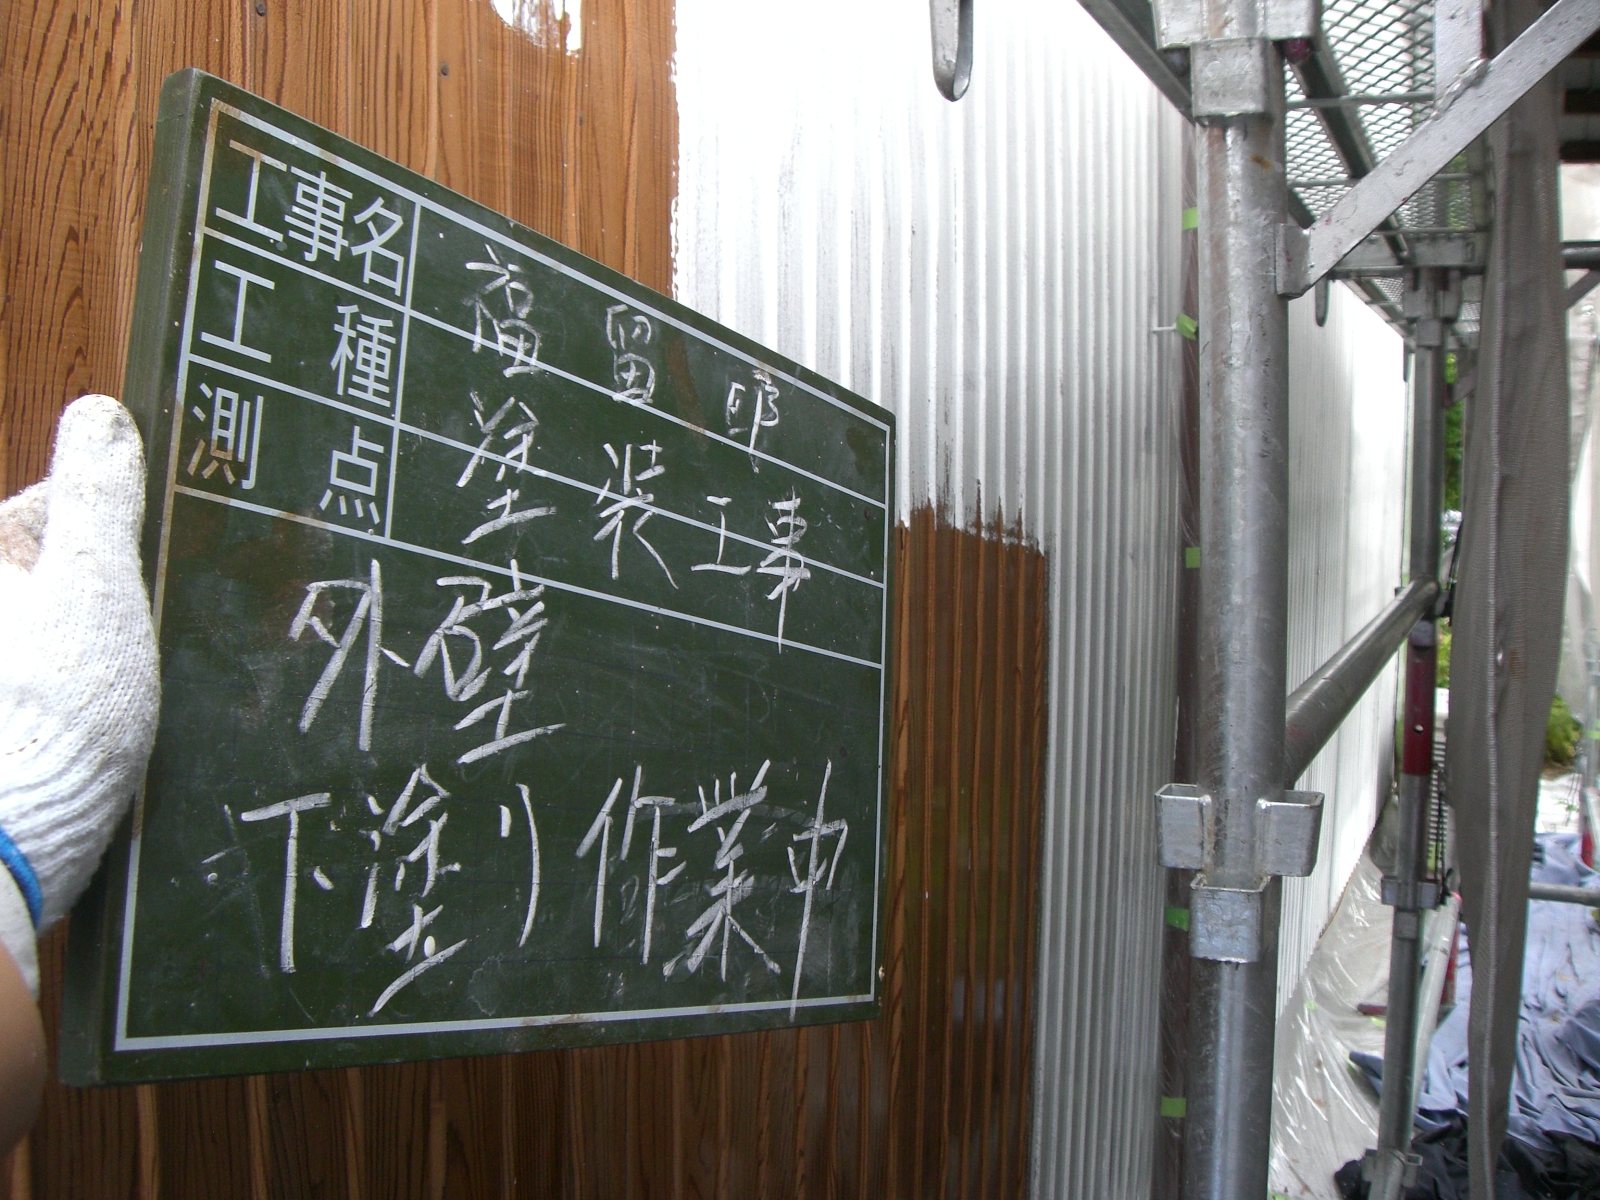 工事名 福留邸
工種 塗装工事
測点
外壁
下塗り作業中